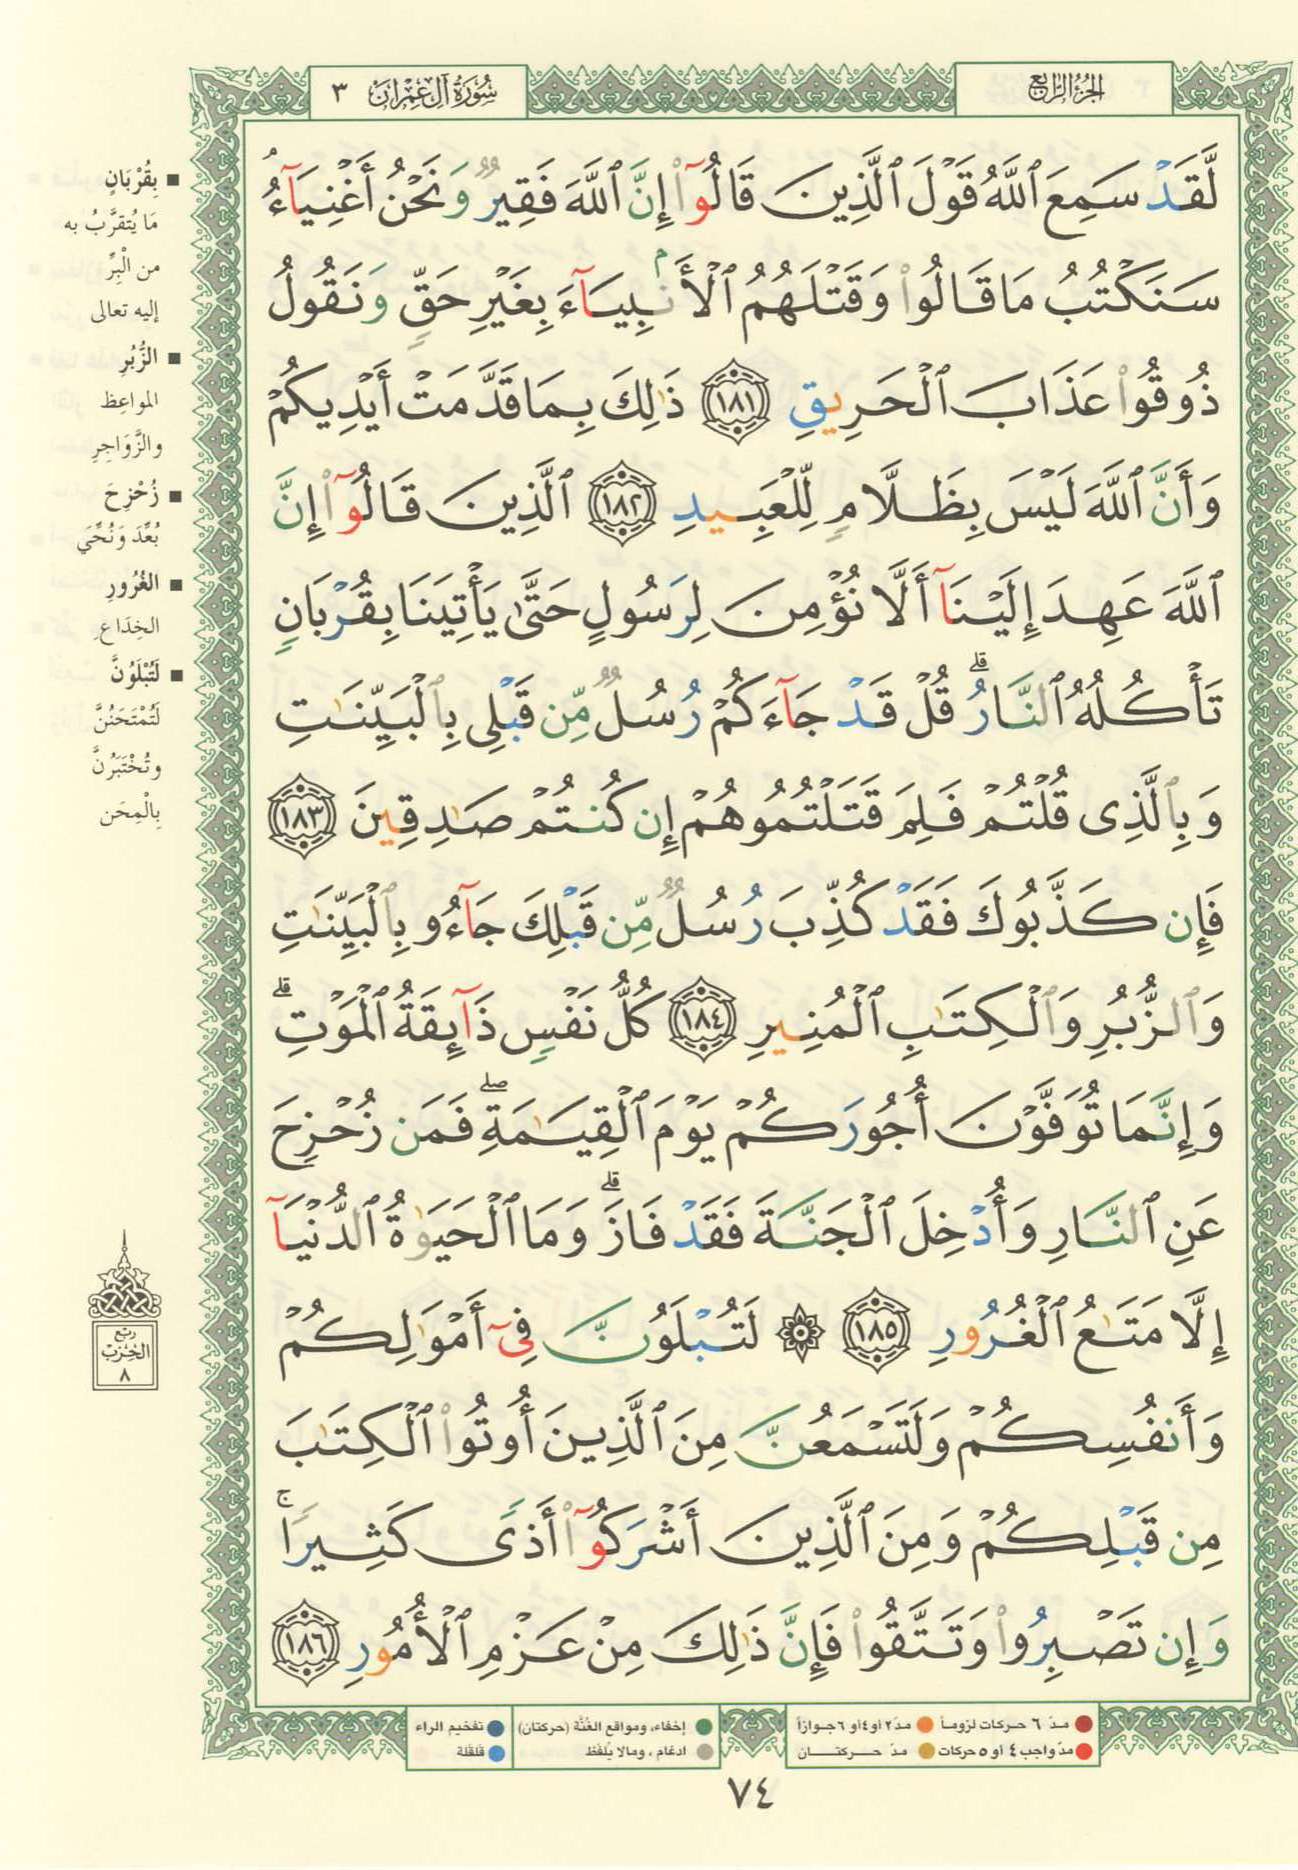 الجزء الرابع
سورة آل عمران ٣
لَّقَدْ سَمِعَ ٱللَّهُ قَوْلَ ٱلَّذِينَ قَالُوٓا۟ إِنَّ ٱللَّهَ فَقِيرٌ وَنَحْنُ أَغْنِيَآءُ ۘ
سَنَكْتُبُ مَا قَالُوا۟ وَقَتْلَهُمُ ٱلْأَنۢبِيَآءَ بِغَيْرِ حَقٍّ وَنَقُولُ
ذُوقُوا۟ عَذَابَ ٱلْحَرِيقِ ١٨١ ذَٰلِكَ بِمَا قَدَّمَتْ أَيْدِيكُمْ
وَأَنَّ ٱللَّهَ لَيْسَ بِظَلَّامٍ لِّلْعَبِيدِ ١٨٢ ٱلَّذِينَ قَالُوٓا۟ إِنَّ
ٱللَّهَ عَهِدَ إِلَيْنَآ أَلَّا نُؤْمِنَ لِرَسُولٍ حَتَّىٰ يَأْتِيَنَا بِقُرْبَانٍ
تَأْكُلُهُ ٱلنَّارُ ۗ قُلْ قَدْ جَآءَكُمْ رُسُلٌ مِّن قَبْلِى بِٱلْبَيِّنَٰتِ
وَبِٱلَّذِى قُلْتُمْ فَلِمَ قَتَلْتُمُوهُمْ إِن كُنتُمْ صَٰدِقِينَ ١٨٣
فَإِن كَذَّبُوكَ فَقَدْ كُذِّبَ رُسُلٌ مِّن قَبْلِكَ جَآءُو بِٱلْبَيِّنَٰتِ
وَٱلزُّبُرِ وَٱلْكِتَٰبِ ٱلْمُنِيرِ ١٨٤ كُلُّ نَفْسٍ ذَآئِقَةُ ٱلْمَوْتِ ۗ
وَإِنَّمَا تُوَفَّوْنَ أُجُورَكُمْ يَوْمَ ٱلْقِيَٰمَةِ ۖ فَمَن زُحْزِحَ
عَنِ ٱلنَّارِ وَأُدْخِلَ ٱلْجَنَّةَ فَقَدْ فَازَ ۗ وَمَا ٱلْحَيَوٰةُ ٱلدُّنْيَآ
إِلَّا مَتَٰعُ ٱلْغُرُورِ ١٨٥ ۞ لَتُبْلَوُنَّ فِىٓ أَمْوَٰلِكُمْ
وَأَنفُسِكُمْ وَلَتَسْمَعُنَّ مِنَ ٱلَّذِينَ أُوتُوا۟ ٱلْكِتَٰبَ
مِن قَبْلِكُمْ وَمِنَ ٱلَّذِينَ أَشْرَكُوٓا۟ أَذًى كَثِيرًا ۚ
وَإِن تَصْبِرُوا۟ وَتَتَّقُوا۟ فَإِنَّ ذَٰلِكَ مِنْ عَزْمِ ٱلْأُمُورِ ١٨٦
■ بِقُرْبَانٍ
مَا يُتقرَّبُ به
من الْبِرِّ
إليه تعالى
■ الزُّبُرِ
المواعِظ
والزَّوَاجِرِ
■ زُحْزِحَ
بُعِّدَ وَنُحِّيَ
■ الغُرُورِ
الخِدَاعِ
■ لَتُبْلَوُنَّ
لَتُمْتَحَنُنَّ
وتُخْتَبَرُنَّ
بِالْمِحَن
ربع
الحزب
٨
مدّ ٦ حركات لزوماً ● مدّ ٢ أو ٤ أو ٦ جوازاً
مدّ واجب ٤ أو ٥ حركات ● مدّ حركتان
إخفاء، ومواقع الغُنَّة (حركتان) ● تفخيم الراء
ادغام، ومالا يُلفَظ ● قلقلة
٧٤